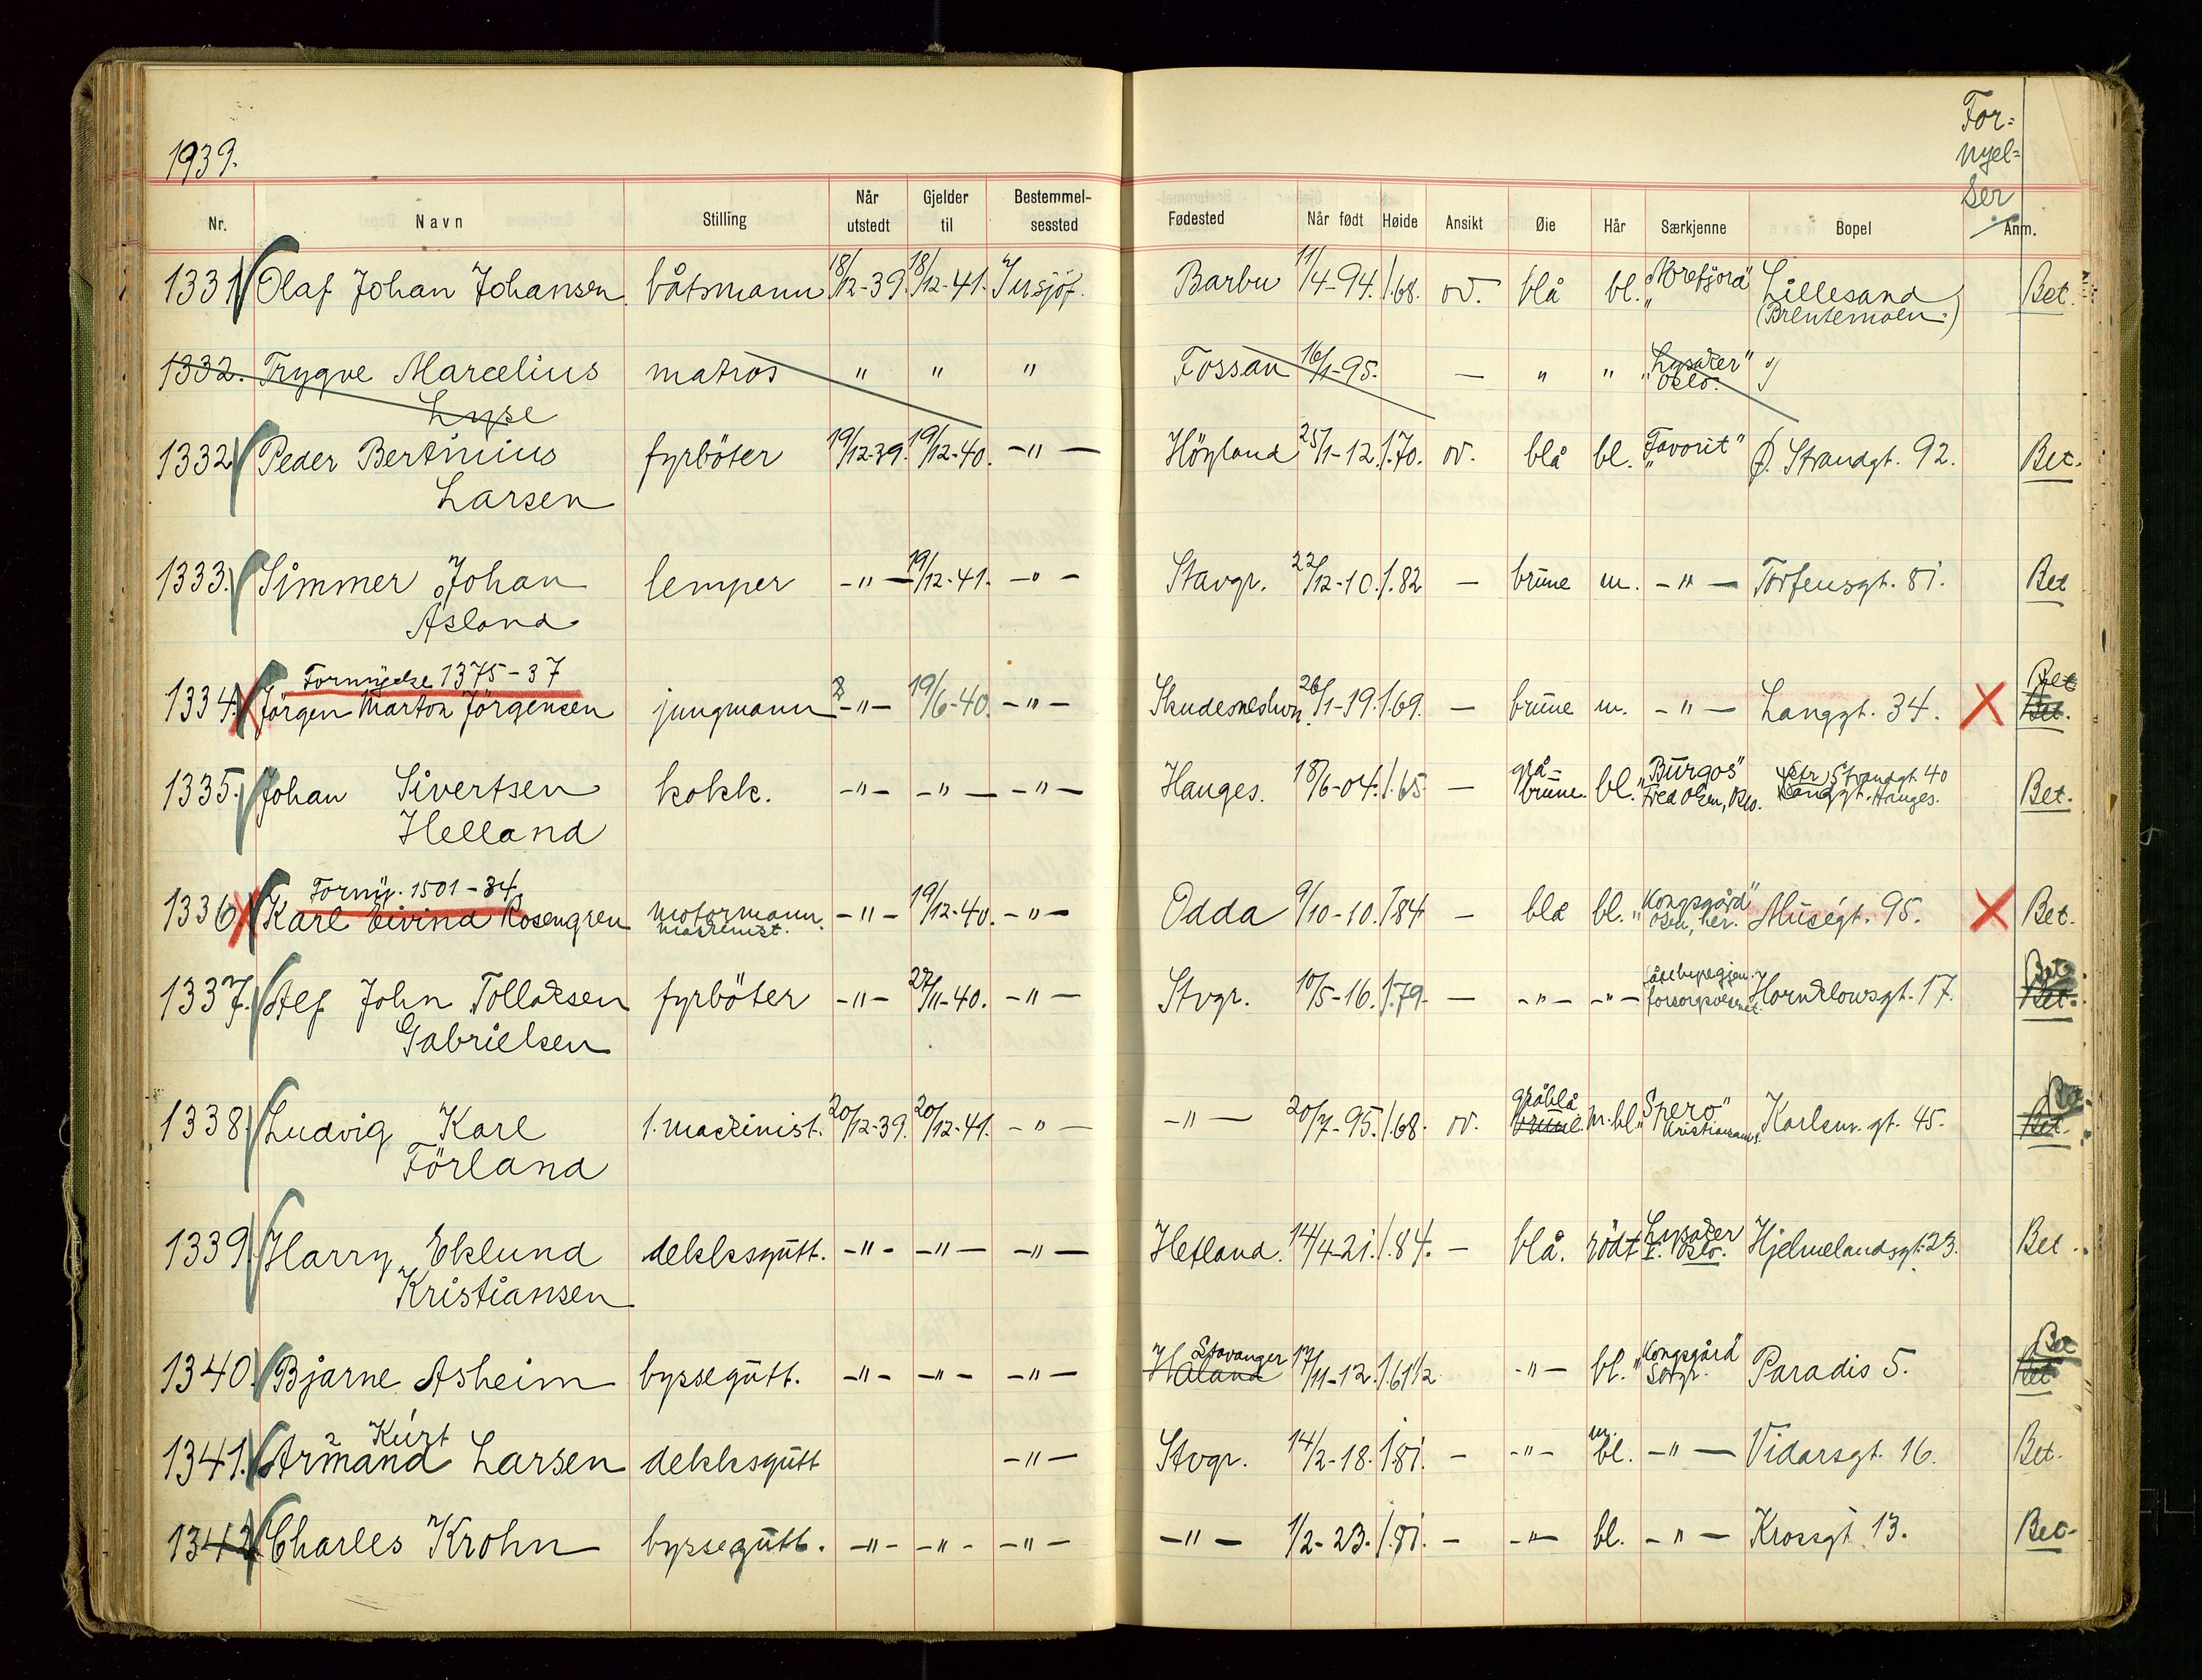 1939.
For=
nyel=
ser
Nr. Navn Stilling Når utstedt Gjelder til Bestemmelsessted Fødested Når født Høide Ansikt Øie Hår Særkjenne Bopel Anm.
1331 Olaf Johan Johansen båtsmann 18/12-39. 18/12-41. Barbu 11/4-94. 1.68. ov. blå bl. "Norefjord" Lillesand Bet.
1332. Trygve Marcelius matros " " " Fossan 16/1-95. — " " "Lysaker"
Lyse Oslo.
1332 Peder Bertinius fyrböter 19/12-39. 19/12-40. -"- Höyland 25/1-12. 1.70. ov. blå bl. "Favorit" Ø. Strandgt. 92. Bet.
Larsen
1333. Simmer Johan lemper -"- 19/12-41. -"- Stavgr. 22/12-10. 1.82 — brune m. -"- Torfeusgt. 81. Bet
Åsland
Fornyelse 1375-37 Bet
1334. Jörgen Marton Jörgensen jungmann -"- 19/6-40. -"- Skudeneshvn. 26/1-19. 1.69. — brune m. -"- Langgt. 34. Bet.
1335. Johan Sivertsen kokk. -"- -"- -"- Hauges. 18/6-04. 1.65 — grå-brune. bl. "Burgos" Strandgt. 40 Bet.
Helland Fred Olsen, Oslo. Hauges.
Forny. 1501-34
1336 Karl Eivind Rosengren motormann. -"- 19/12-40. -"- Odda 9/10-10. 1.84 — blå bl. "Kongsgård" Muségt. 95. Bet.
maskinist.
1337. Alf John Tollaksen fyrböter -"- 27/11-40. -"- Stvgr. 10/5-16. 1.79. — -"- -"- forsorgsvesenet. Hornklowsgt. 17. Bet.
Gabrielsen
1338 Ludvig Karl 1. maskinist. 20/12-39. 20/12-41. -"- -"- 20/7-95. 1.68. ov. gråblå brune. m.bl. "Spero" Karlsm. gt. 45. Bet.
Förland Kristiansand S.
1339. Harry Eklund dekksgutt. -"- -"- -"- Hetland. 14/4-21. 1.84. — blå. rödt Lysaker Hjelmelandsgt. 23. Bet.
Kristiansen Oslo.
Stavanger Bet
1340. Bjarne Asheim byssegutt. -"- -"- -"- Håland 17/11-12. 1.61½ -"- bl. "Kongsgård" Paradis 5. Bet
Kurt
1341. Armand Larsen dekksgutt -"- Stvgr. 14/2-18. 1.81. — -"- m. bl. -"- Vidarsgt. 16. Bet.
1342. Charles Krohn byssegutt. -"- -"- -"- -"- 1/2-23. 1.81. — -"- bl. -"- Krossgt 13. Bet.